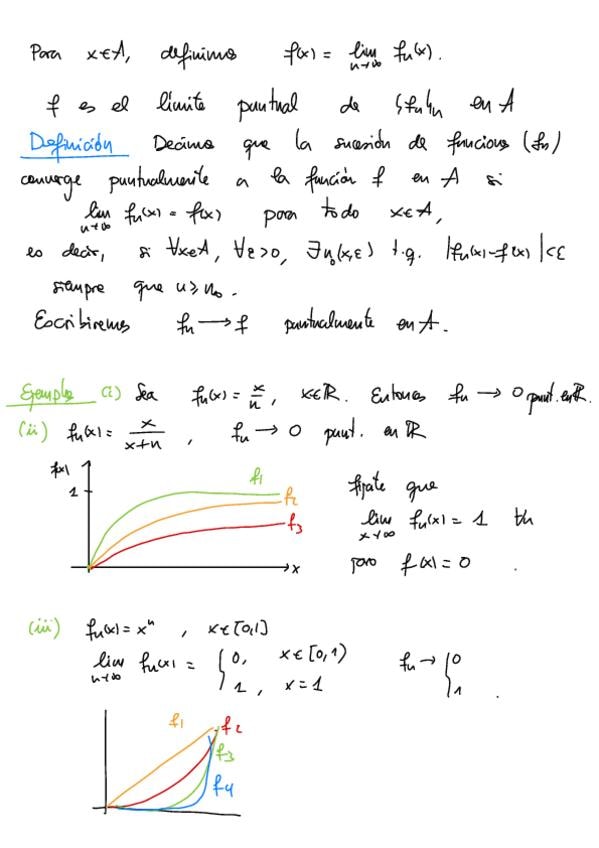 Para x∈A, definimos f(x) = lim_{n→∞} fn(x).
f es el límite puntual de {fn}n en A
Definición Decimos que la sucesión de funciones (fn)
converge puntualmente a la función f en A si
lim_{n→∞} fn(x) = f(x) para todo x∈A,
es decir, si ∀x∈A, ∀ε>0, ∃n₀(x,ε) t.q. |fn(x)-f(x)|<ε
siempre que n≥n₀.
Escribiremos fn → f puntualmente en A.
Ejemplos (i) Sea fn(x) = x/n, x∈ℝ. Entonces fn → 0 punt. en ℝ.
(ii) fn(x) = x/(x+n), fn → 0 punt. en ℝ
f(x)
1
f1
f2
f3
x
fíjate que
lim_{x→∞} fn(x) = 1 ∀n
pero f(x) = 0.
(iii) fn(x) = xⁿ, x∈[0,1]
lim_{n→∞} fn(x) = { 0, x∈[0,1)
1, x=1
fn → { 0
1.
f1
f2
f3
f4